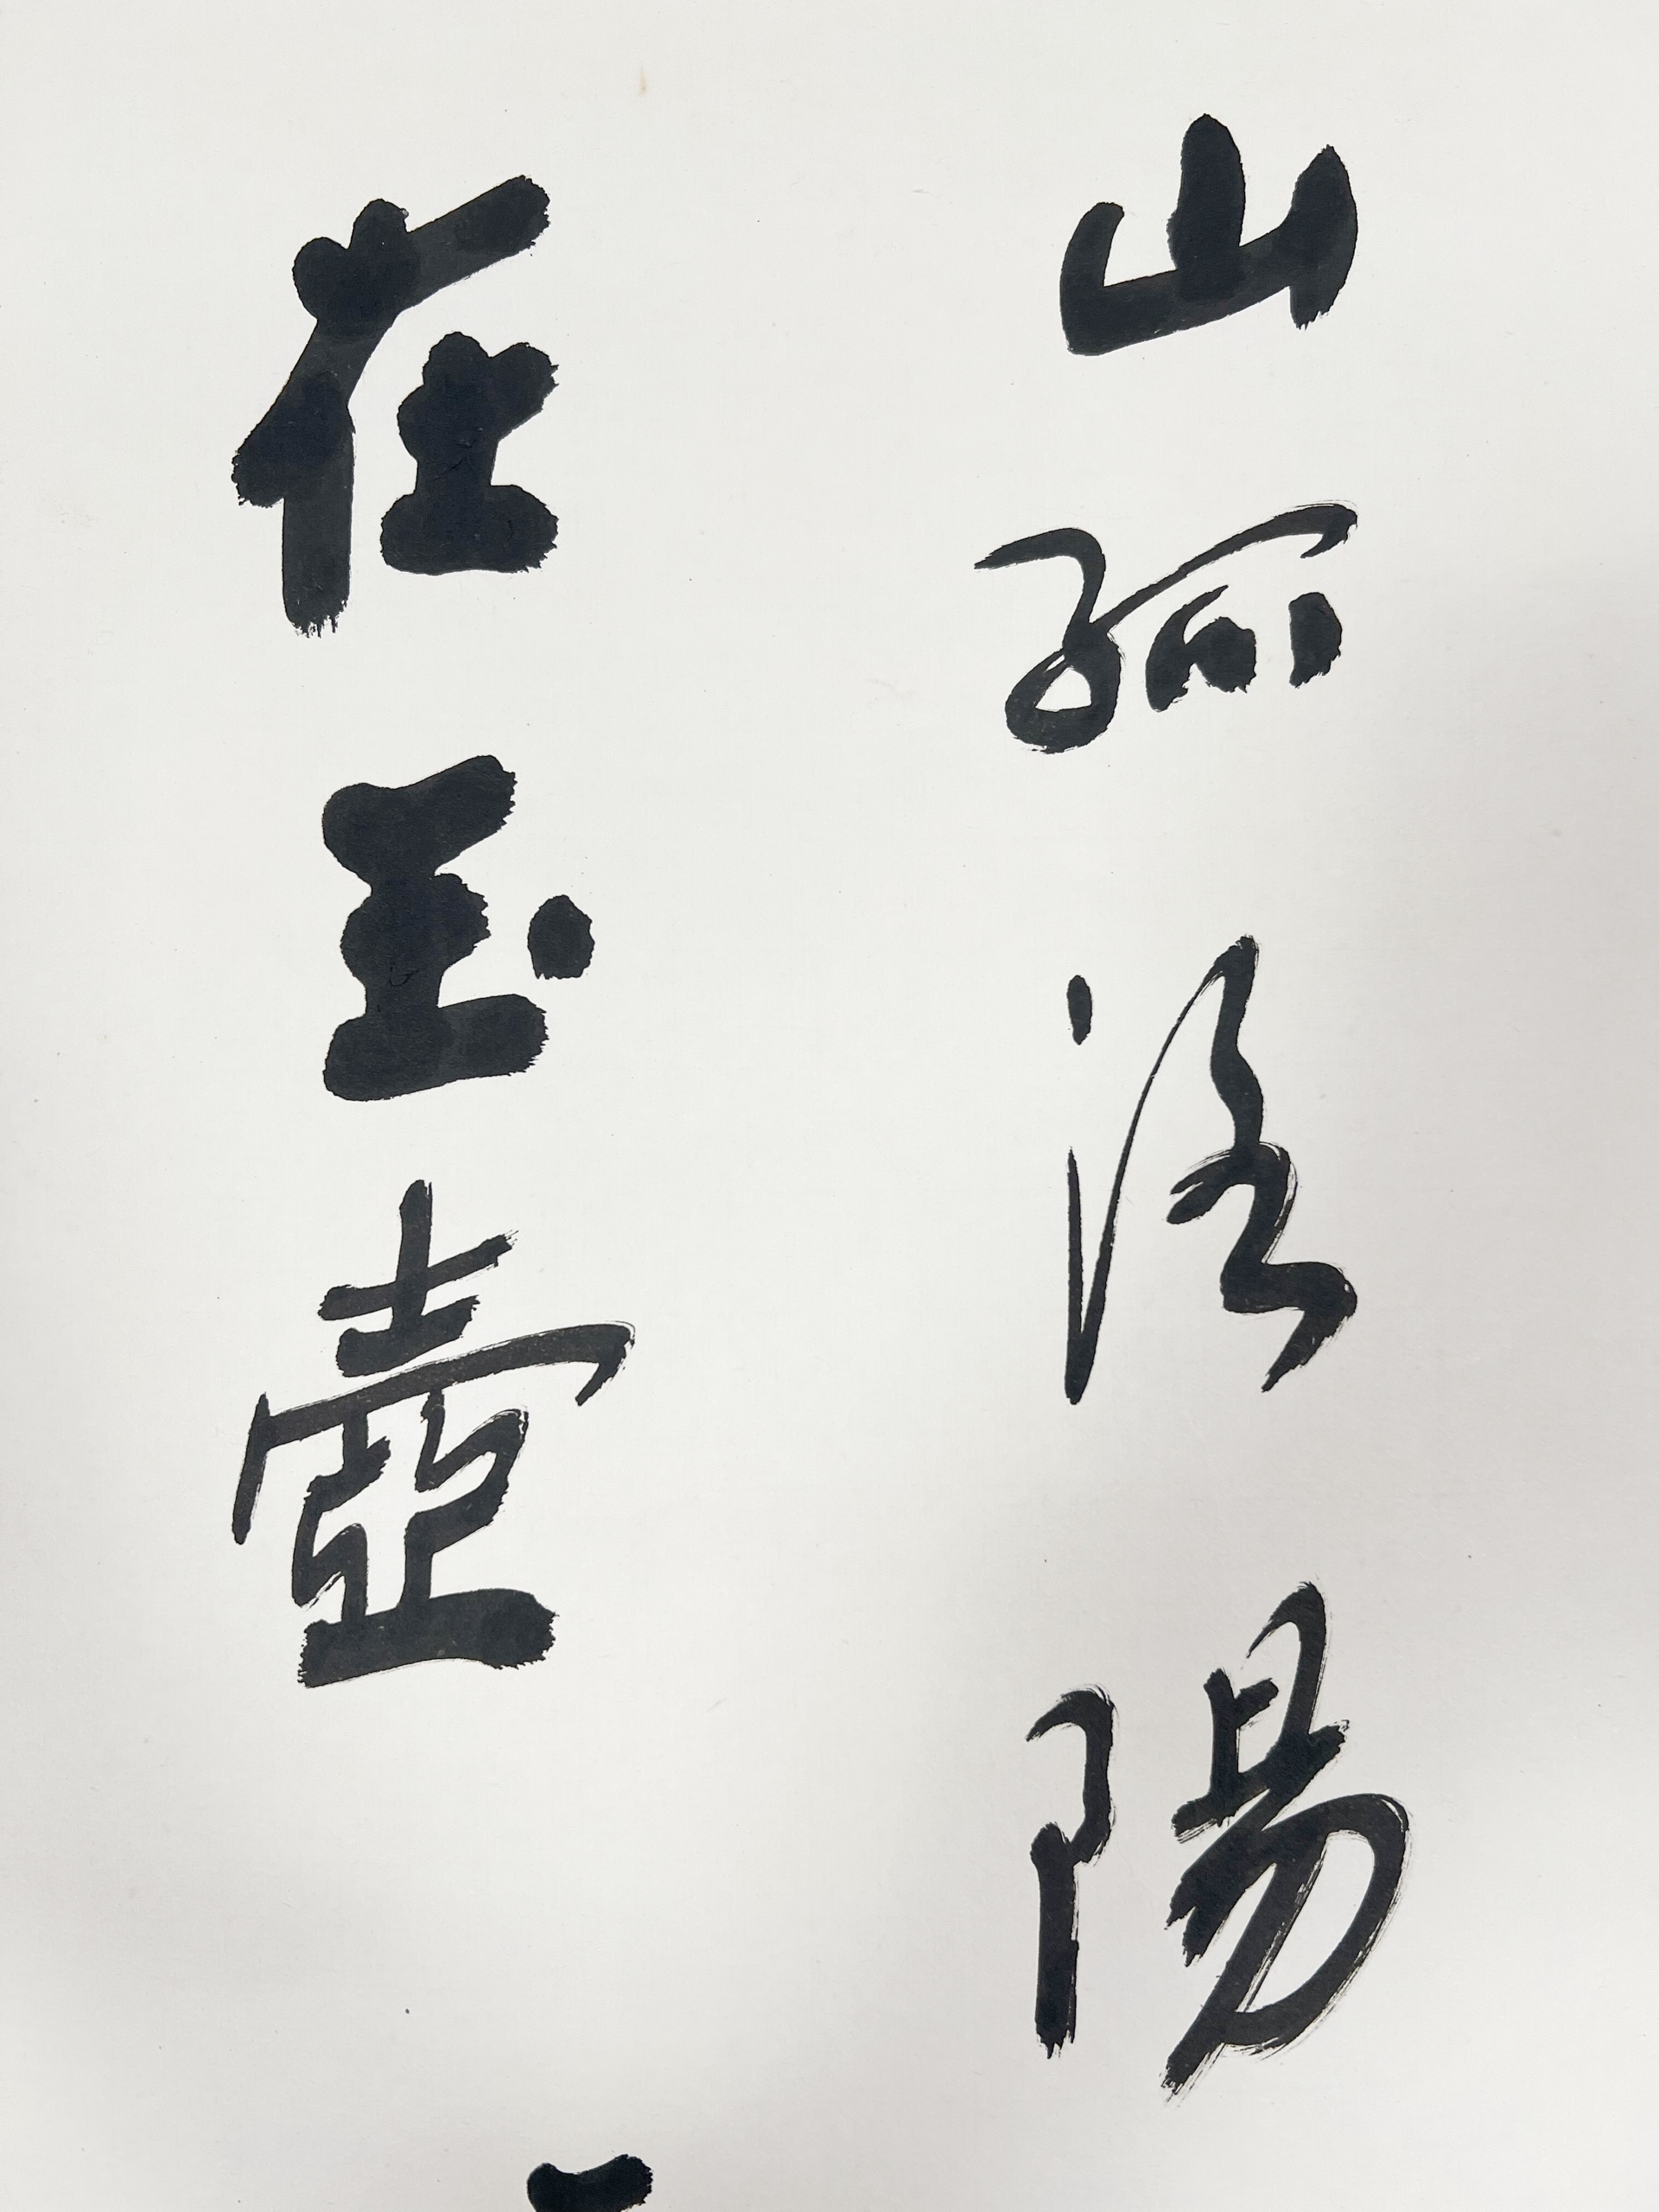 山孤洛陽
在玉壺